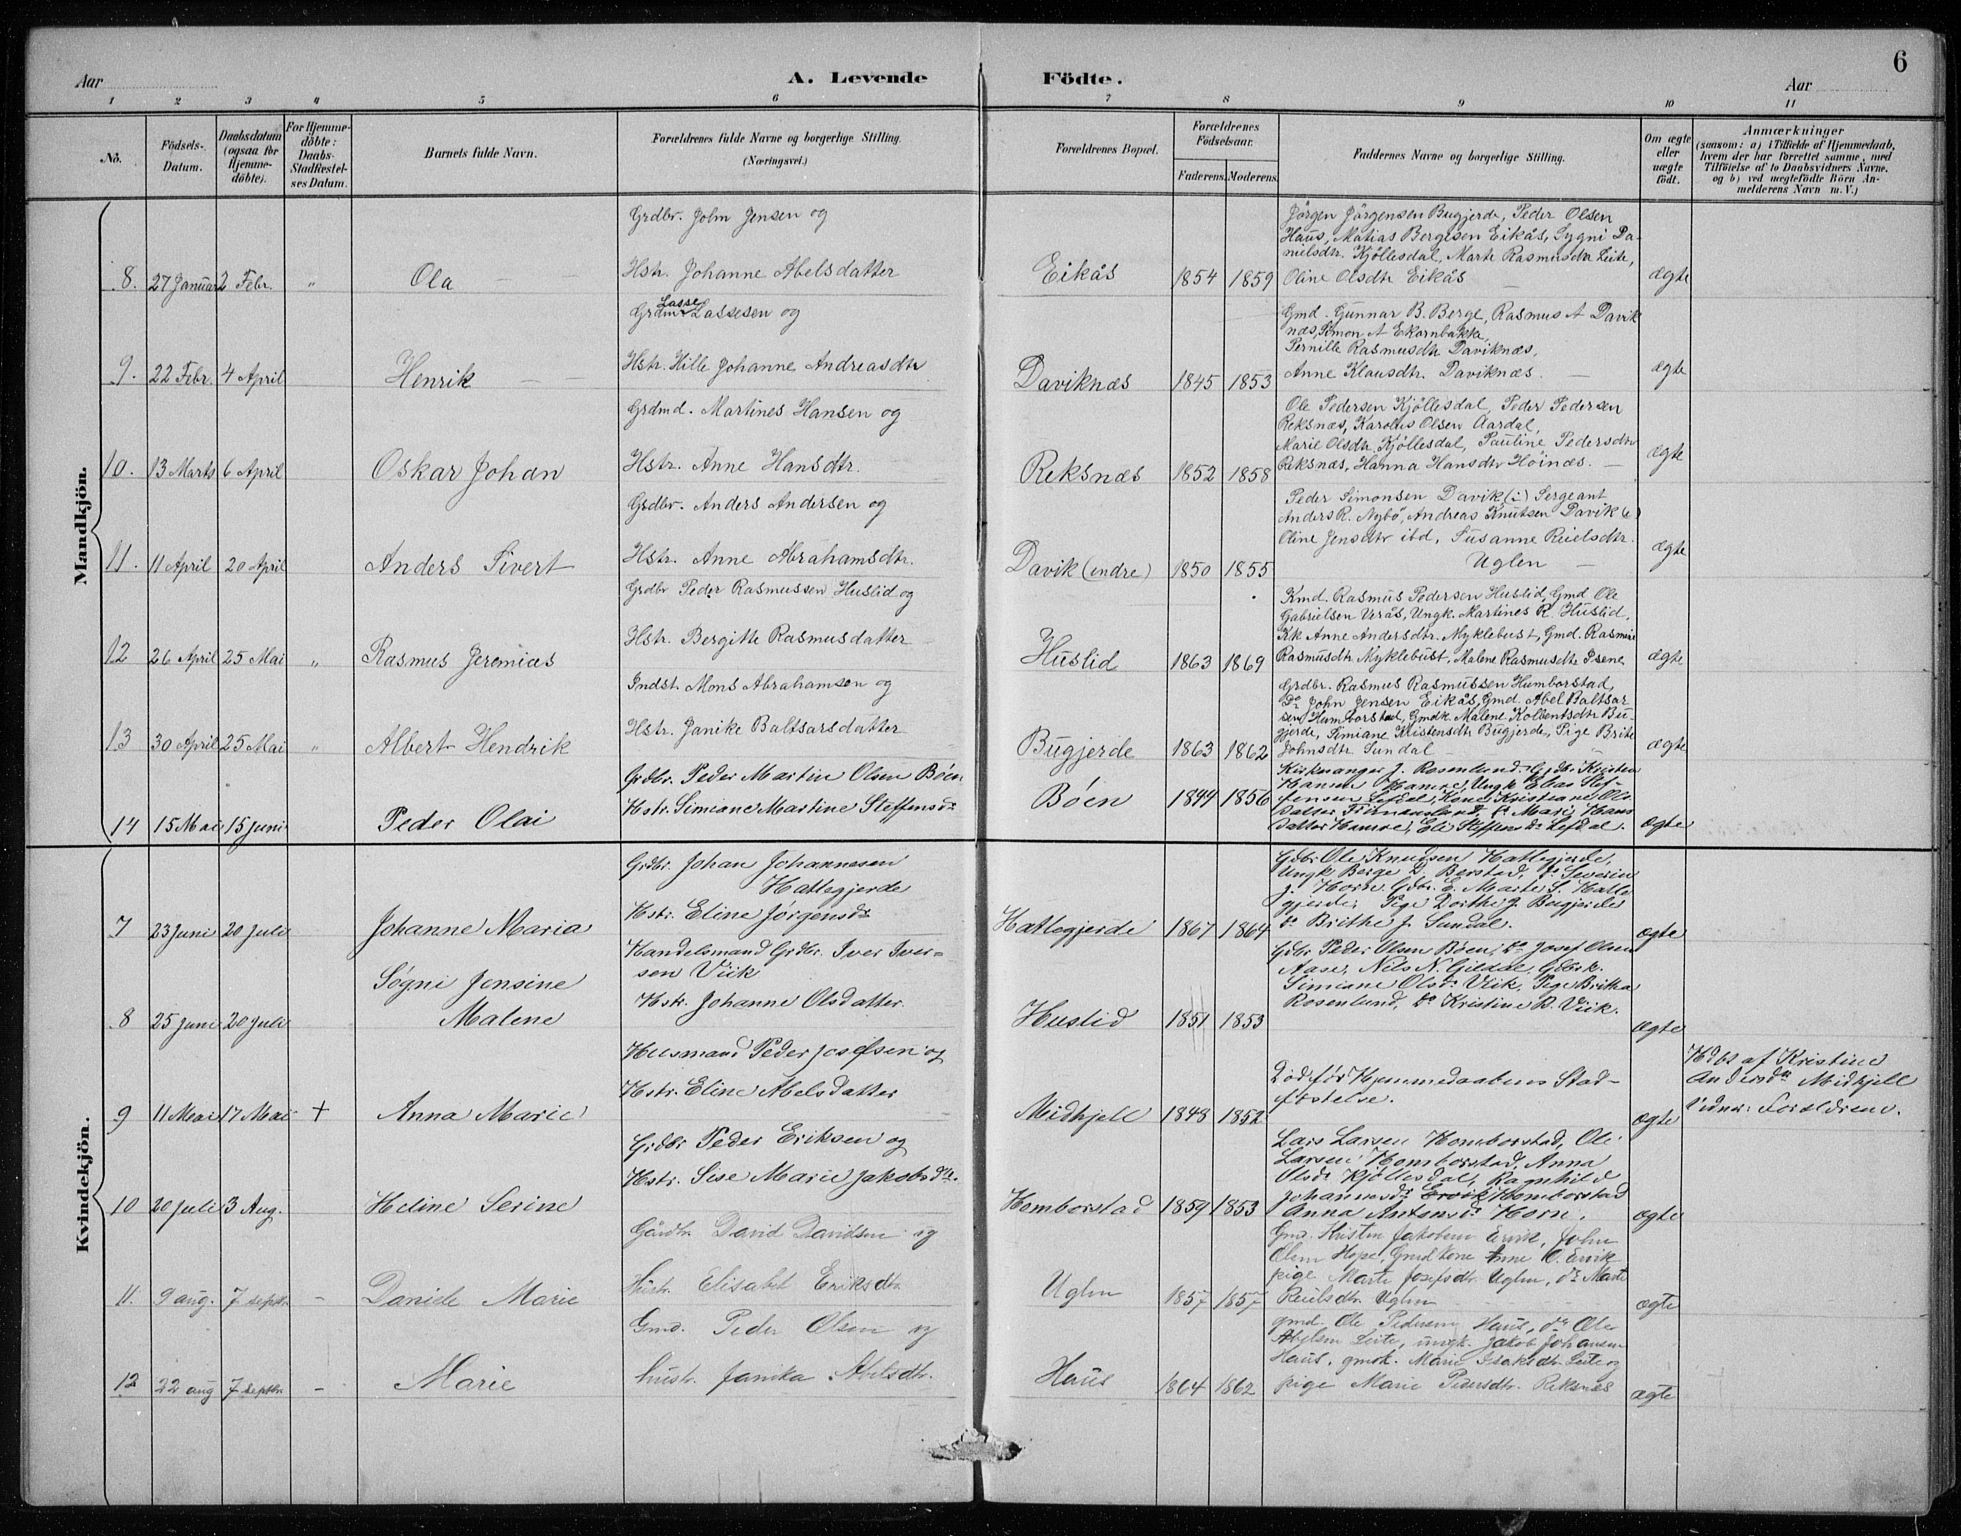 6
Aar
A. Levende
Födte.
Aar
1 2 3 4 5 6 7 8 9 10 11
No.
Födsels-
Datum.
Daabsdatum
(ogsaa for
Hjemme-
döbte).
For Hjemme-
döbte:
Daabs-
Stadfæstel-
ses Datum.
Barnets fulde Navn.
Forældrenes fulde Navne og borgerlige Stilling.
(Næringsvei.)
Forældrenes Bopæl.
Forældrenes
Födselsaar.
Faderens. Moderens.
Faddernes Navne og borgerlige Stilling.
Om ægte
eller
uægte
födt.
Anmærkninger
(saasom: a) i Tilfælde af Hjemmedaab,
hvem der har forrettet samme, med
Tilföielse af to Daabsvidners Navne.
og b) ved uægtefödte Börn An-
melderens Navn m. V.)
Mandkjön.
8. 27 Januar 2 Febr. „ Ola
Grdbr. John Jensen og
Hstr. Johanne Abelsdatter
Eikås 1854 1859
Jörgen Jörgensen Bugjerde, Peder Olsen
Haus, Matias Bergesen Eikås, Sygni Da-
nielsdtr. Kjöllesdal, Marte Rasmusdtr Leite,
Oline Olsdtr Eikås
ægte
9. 22 Febr. 4 April Henrik
Lasse
Grdm Lassesen og
Hstr. Hille Johanne Andreasdtr
Daviknæs 1845 1853
Gmd. Gunnar B. Berge, Rasmus A Davik
næs, Simon A Ekornbakke,
Pernille Rasmusdtr Daviknæs,
Anne Klausdtr. Daviknæs.
ægte
10. 13 Marts 6 April Oskar Johan
Grdmd. Martines Hansen og
Hstr. Anne Hansdtr.
Reksnæs 1852 1858
Ole Pedersen Kjöllesdal, Peder Pedersen
Reksnæs, Karolus Olsen Aardal,
Marie Olsdtr. Kjöllesdal, Pauline Pedersdtr
Reksnæs, Hanna Hansdtr Höinæs.
ægte
11. 11 April 20 April Anders Sivert
Grdbr. Anders Andersen og
Hstr. Anne Abrahamsdtr.
Davik (indre) 1850 1855
Peder Simonsen Davik (i) Sergeant
Anders R. Nybö, Andreas Knutsen Davik
Oline Jensdtr ibd, Susanne Reielsdtr.
Uglen
ægte
12 26 April 25 Mai „ Rasmus Jeremias
Grdbr Peder Rasmussen Huslid og
Hstr. Bergitte Rasmusdatter
Huslid 1863 1869
Kmd. Rasmus Pedersen Huslid, Gmd Ole
Gabrielsen Verås, Ungk. Martines R. Huslid,
Kk Anne Andersdtr. Myklebust, Gmd. Rasmine
Rasmusdtr Myklebust, Malene Rasmusdtr Isene
ægte
13 30 April 25 Mai „ Albert Hendrik
Indst. Mons Abrahamsen og
Hstr. Janike Baltsarsdatter
Bugjerde 1863 1862
Grdbr. Rasmus Rasmussen Humborstad,
Do John Jensen Eikås, Gmd. Abel Baltsar-
sen Humborstad, Gmdk. Malene Kolbentsdtr Bu-
gjerde, Simiane Kristensdtr Bugjerde, Pige Brite
Johnsdtr Sundal
ægte
14 15 Mai 15 juni Peder Olai
Grdbr. Peder Martin Olsen Böen
Hstr. Simiane Martine Steffensdr
Böen 1844 1856
Kirkesanger J. Rosenlund, Grdbr Kristen
Hansen Hamre, Ungk Elias Stef-
fensen Lefdal, Kone Kristiane Ols-
datter, do Marie Hans
datter Hamre, Eli Steffensdr Lefdal.
ægte
Kvindekjön.
7 23 juni 20 juli Johanne Maria
Grdbr. Johan Johannesen
Hattegjerde
Hstr. Eline Jørgensdr
Hattegjerde 1867 1864
Gdbr Ole Knudsen Hattegjerde,
Ungk Berge D. Berstad, do Severin
J. Horn. Gdbr. E. Marte S. Hatte-
gjerde, Pige Dorthe J. Bugjerde
do Brithe J. Sundal.
ægte
8 25 juni 20 juli Søgni Jensine
Malene
Handelsmand Grdbr. Iver Iver-
sen Viik
Hstr. Johanne Olsdatter
Huslid 1851 1853
Gdbr Peder Olsen Böen, do Josef Olsen
Aase, Nils N. Gildal, Gdbrk.
Simiane Olsdr Viik, Pige Britha
Rosenlund, do Kristine R. Viik.
ægte
9 11 Mai 17 Mai + Anna Marie
Husmand Peder Josefsen og
Hstr. Eline Abelsdatter
Midhjell 1848 1852
Död før Hjemmedaabens Stad-
fæstelse.
ægte
Hdbt af Kristine
Andersdtr Midhjell
Vidner: Forældrene.
10 20 juli 3 Aug. Heline Serine
Grdbr Peder Eriksen og
Hstr. Sise Marie Jakobsdtr.
Homborstad 1859 1853
Lars Larsen Homborstad, Ole
Larsen Homborstad, Anna
Olsdr Kjöllesdal, Ragnhild
Johannesdr Ervik Homborstad
Anna Antonsdr Horn.
ægte
11. 9 aug. 7 septbr – Danide Marie
Gårdbr. David Davidsen og
Hustr. Elisabet Eriksdtr
Uglen 1857 1857
Gmd. Kristen Jakobsen Ervik, John
Olsen Hope, Gmdkone Anne O. Ervik
pige Marte Josefsdtr Uglen, do Marte
Reielsdtr. Uglen
ægte
12 22 aug 7 septbr – Marie
Gmd. Peder Olsen og
hustr. Janika Abelsdtr.
Haus 1864 1862
gmd. Ole Pedersen Haus, do Ole
Abelsen Leite, ungk. Jakob Johansen
Haus, gmdk. Marie Isaksdtr Leite og
pige Marie Pedersdtr. Reksnæs
ægte